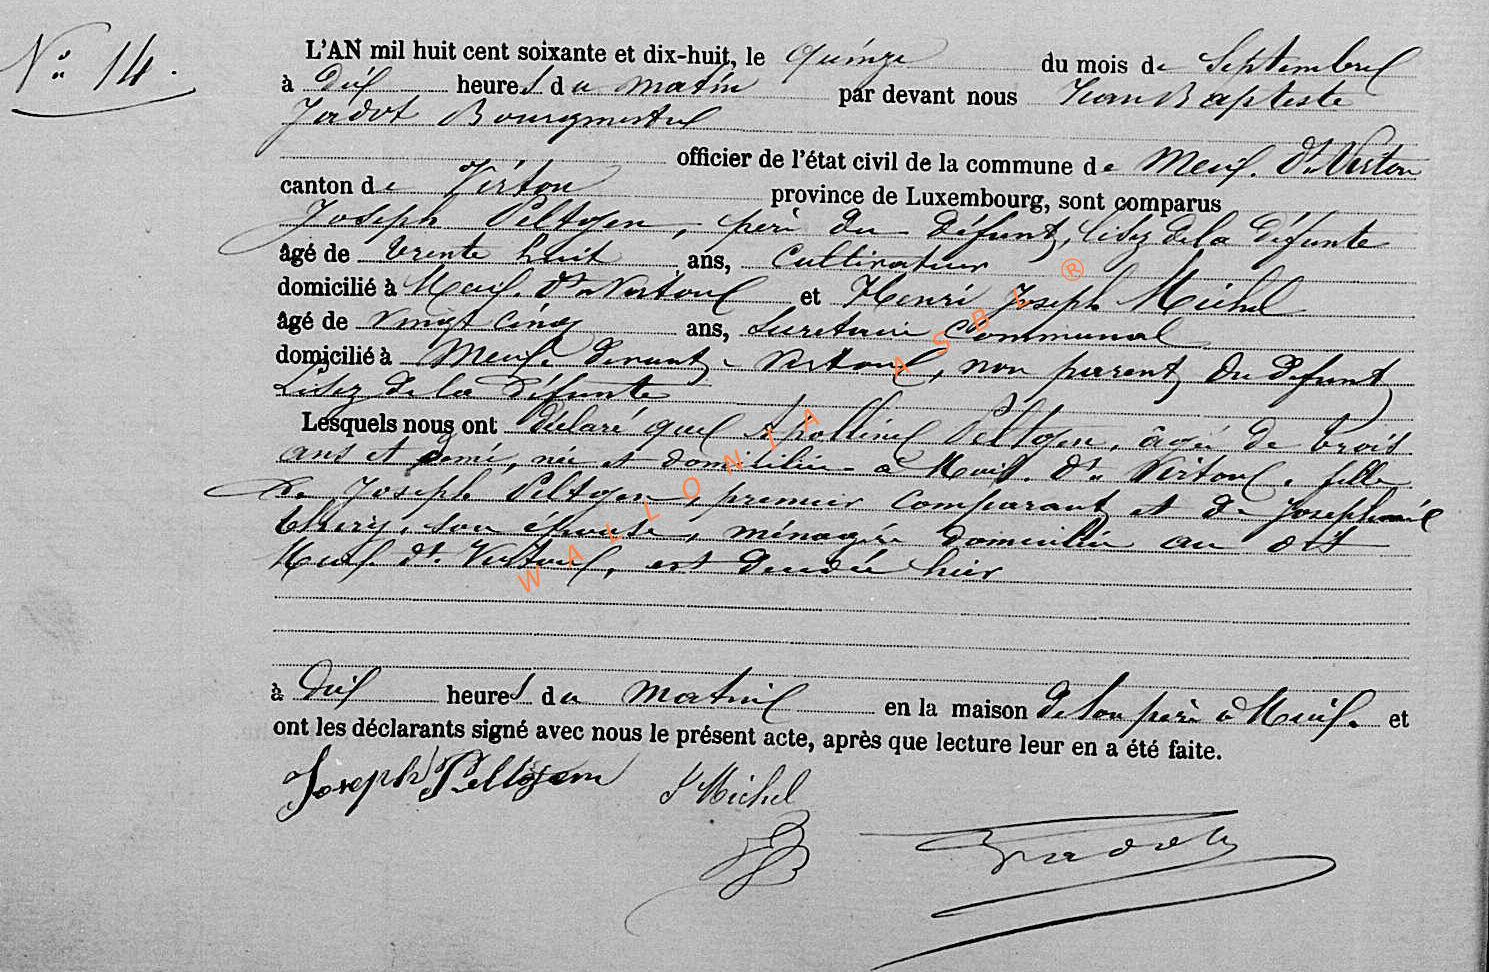 N° 14.
L'AN mil huit cent soixante et dix-huit, le quinze du mois de Septembre
à dix heures du matin par devant nous Jean Baptiste
Jadot Bourgmestre
officier de l'état civil de la commune de Meix. dt. Virton
canton de Virton province de Luxembourg, sont comparus
Joseph Peltgen, père du défunt, lisez de la défunte
âgé de trente huit ans, cultivateur
domicilié à Meix. dt. Virton et Henri Joseph Michel
âgé de vingt cinq ans, Secrétaire communal
domicilié à Meix devant Virton, non parent du défunt
Lisez de la défunte
Lesquels nous ont déclaré que Apolline Peltgen, âgée de trois
ans et demi, née et domiciliée à Meix. dt. Virton, fille
de Joseph Peltgen, premier comparant et de Joséphine
Thiry, son épouse, ménagère domiciliée au dit
Meix. dt. Virton, est décédée hier
à dix heures du matin en la maison de son père à Meix. et
ont les déclarants signé avec nous le présent acte, après que lecture leur en a été faite.
Joseph Peltgen J Michel
Jadot
WALLONIA ASBL ®